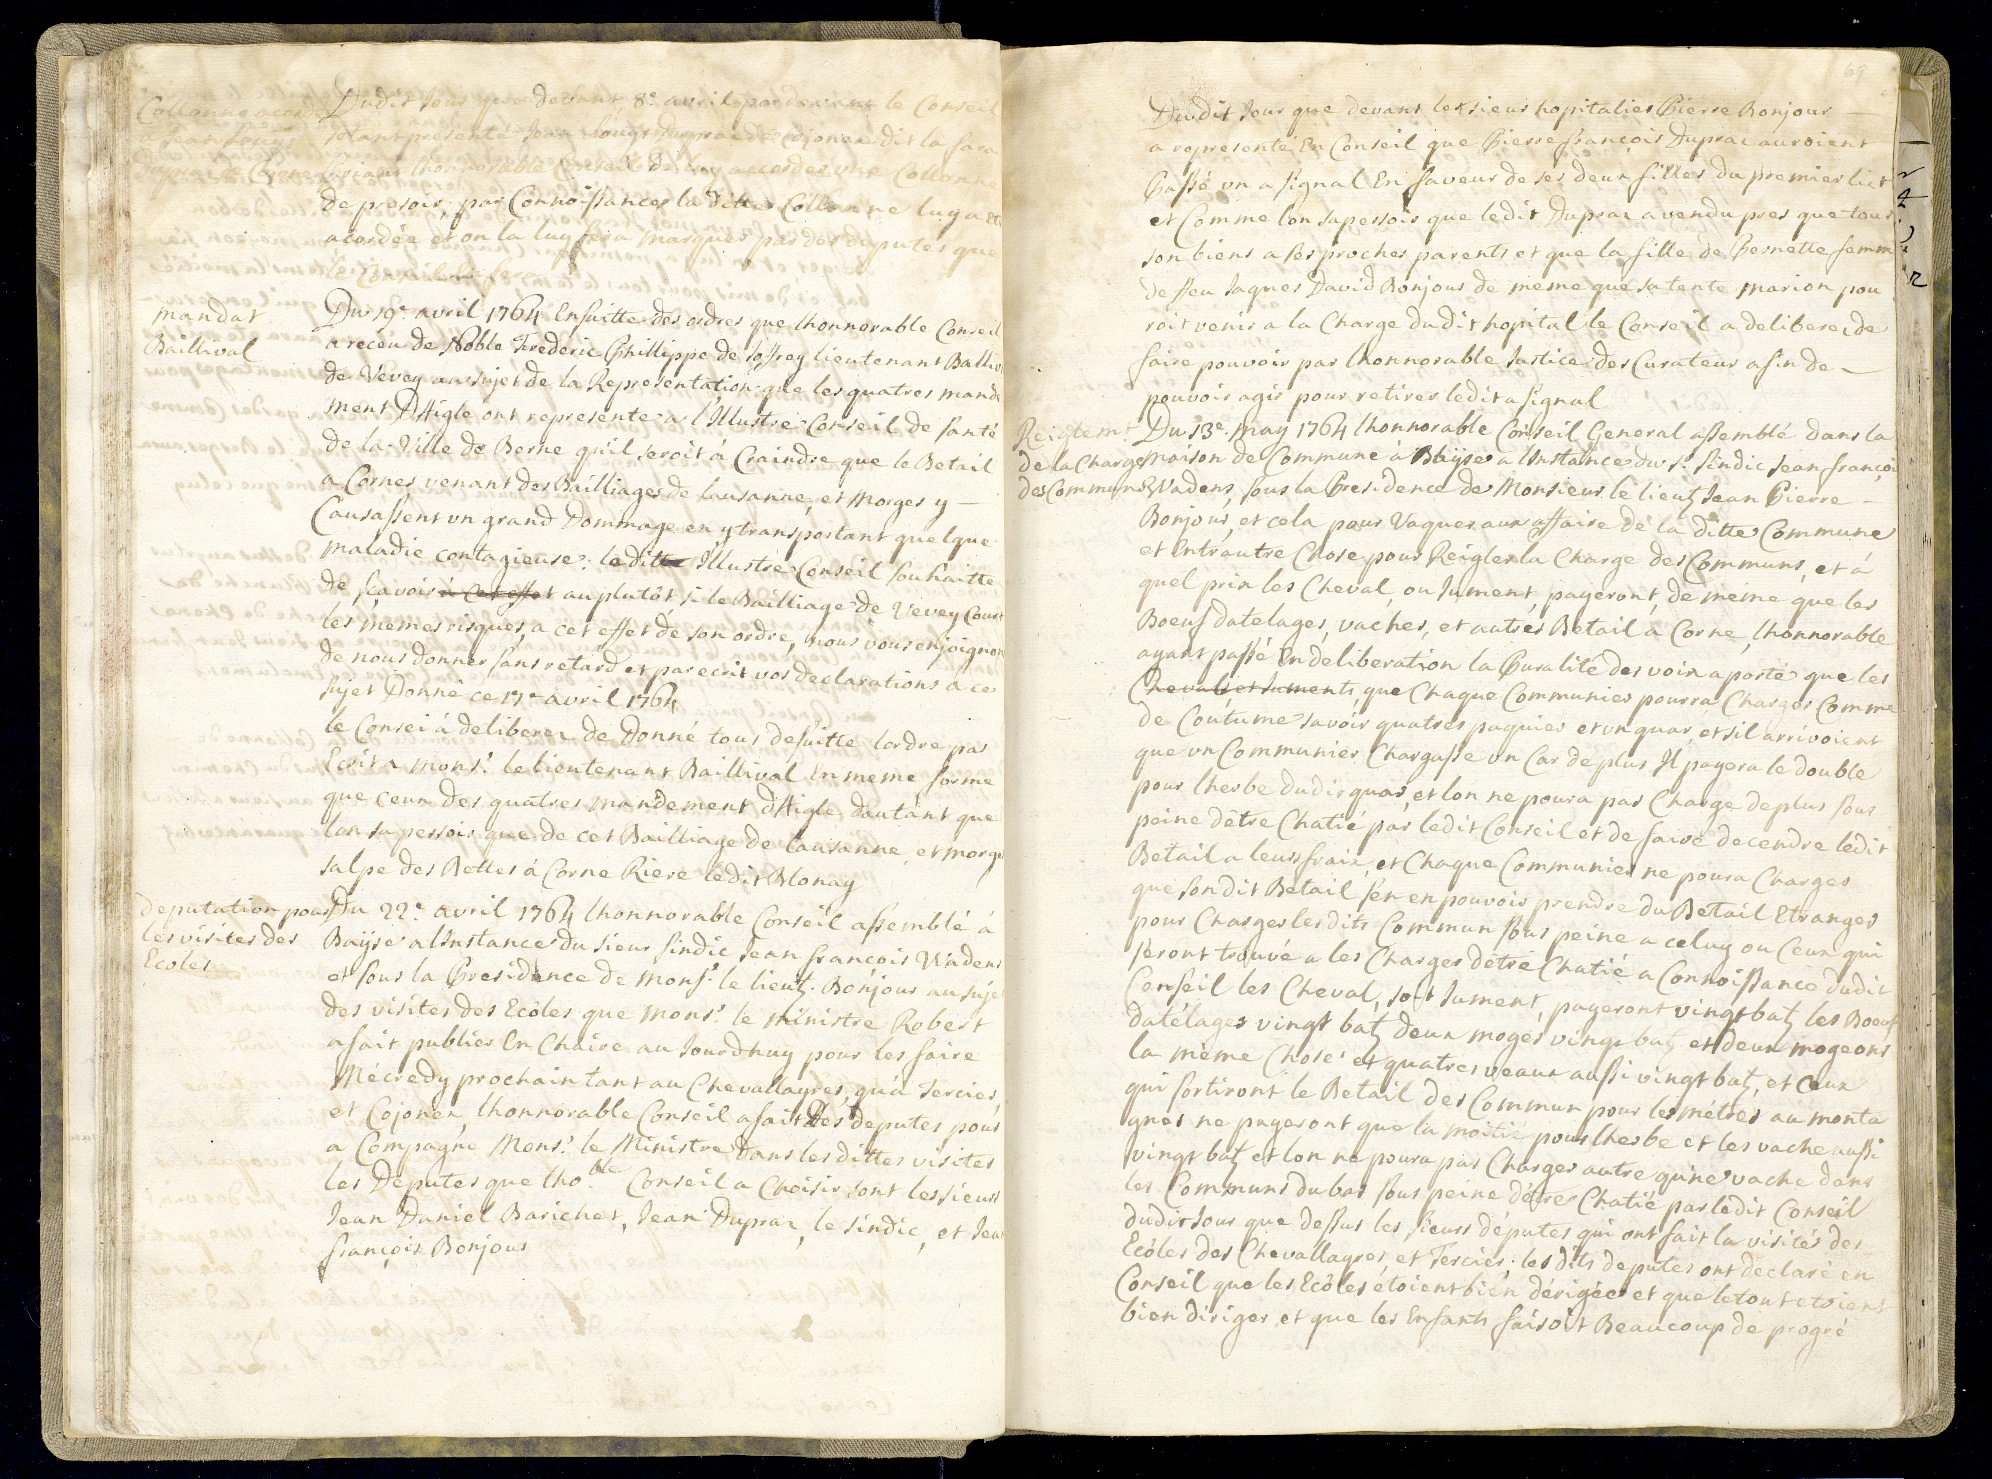 Collonne acor
a Jean Louys
Duprat de Cojonex
Dudit Jour que devant 8.e avril par devant le Conseil
estant presenté Jean Louys Duprat de Cojonex dit la fara
Priant lhonnorable Conseil de luy accorder une Collonne
de presoir, par Connoissance la ditte Collonne luy a Ete
acordée et on la luy fera marquer par des deputés que
le Conseil
mandat
Baillival
Du 19.e avril 1764 Ensuitte des ordres que lhonnorable Conseil
a receu de Noble Frederic Phillippe de Joffrey lieutenant Balliv
de Vevey au sujet de la Representation que les quatres mande
ment DAigle ont represente a l'Illustre Conseil de santé
de la Ville de Berne quil seroit á Craindre que le Betail
a Cornes venant des Bailliages de lausanne, et Morges y —
Causassent un grand Dommage en y transportant quelque
maladie contagieuse; le ditte Illustre Conseil souhaitte
de sçavoir à Cet effet au plutôt si le Bailliage de Vevey Court
les mêmes risques, a cet effet de son ordre, nous vous enjoignon
de nous donner sans retard et par ecrit vos declarations a ce
sujet Donné ce 17.e avril 1764
le Consei á deliberer de Donné tous desuitte lordre par
Ecrit a Mons.r le lieutenant Baillival En meme forme
que ceux des quatres mandement dAigle dautant que
lon sapersois que de cet Bailliage de lausanne, et morge
salpe des Bettes á Corne Riere ledit Blonay
deputation pour
les visites des
Ecoles
Du 22.e avril 1764 lhonnorable Conseil assemblé á
Baÿse a lInstance du sieur sindic Jean françois Vadens
et sous la Presidence de Mons.r le lieut. Bonjour au sujet
des visites des Ecôles que Mons.r le ministre Robert
a fait publier En Chaire au Jourdhuy pour les faire
Mécredy prochain tant au Chevallayres, qu'a Tercier,
et Cojonex, lhonnorable Conseil a fait Des deputes pour
a Compagné Mons.r le Ministre dans les dittes visites
les Deputes que lho.ble Conseil a Choisir sont les sieurs
Jean Daniel Barichet, Jean Dupraz, le sindic, et Jean
françoix Bonjour
69
Dudit Jour que devant le sieur hopitalier Pierre Bonjour —
a representé En Conseil que Pierre françois Dupraz auroient
Passé un assignal En faveur de ses deux filles du premier lict
et Comme lon sapersois que ledit Dupraz a vendu pres que tous
son biens a ses proches parents et que la fille de Pernette femm
de ffeu Jaques David Bonjour de même que sa tente Marion pou
roit venir a la Charge dudit hopital le Conseil a deliberer de
faire pouvoir par lhonnorable Justice des Curateur afin de —
pouvoir agir pour retirer ledit assignal
Reiglem.t
de la Charge
des Communs
Du 13.e may 1764 lhonnorable Conseil General assemblé dans la
maison de Commune á Blaÿse a lInstance du s.r sindic Jean françoi
Vadens, sous la Presidence de Monsieur le lieut Jean Pierre —
Bonjour, et cela pour Vaquer aux affaire de la ditte Commune
et Entrautre Chose pour Reigler la Charge des Communs, et á
quel prix les Cheval, ou Jument, payeront, de même que les
Boeuf datelages, vaches, et autrés Betail a Corne, lhonnorable
ayant passé En deliberation la Pluralité des voix a porté que les
Cheval et Juments que Chaque Communier pourra Charger Comme
de Coûtume savoir quatres paquier et un quar, et sil arrivoient
que un Communier Chargasse un Car de plus Il payera le double
pour lherbe dudit quar, et lon ne poura pas Charge deplus sous
peine dêtre Chatié par ledit Conseil et de faire decendre ledit
Betail a leurs fraix, et Chaque Communier ne poura Charger
que son dit Betail sen en pouvoir prendre du Betail Etranger
pour Charger les dits Commun sous peine a celuy ou Ceux qui
seront trouvé a les Charger dêtre Chatié a Connoissance dudit
Conseil les Cheval, soit Jument, payeront vingt batz les Boeuf
datélages vingt batz deux moges vingt batz et deux mogeons
la même Chose et quatres veaux aussi vingt batz, et ceux
qui sortiront le Betail des Commun pour les métres au monta
gnes ne payeront que la moitié pour lherbe et les vache aussi
vingt batz et lon ne poura pas Charger autre quine vache dans
les Communs du bas sous peine dêtre Chatié par ledit Conseil
dudit Jour que dessus les sieurs députes qui ont fait la visites des
Ecôles des Chevallayres, et Tercier; les dits deputes ont declaré en
Conseil que les Ecôles étoient bien dérigées et que le tout etoient
bien diriger et que les Enfants faisoit Beaucoup de progré